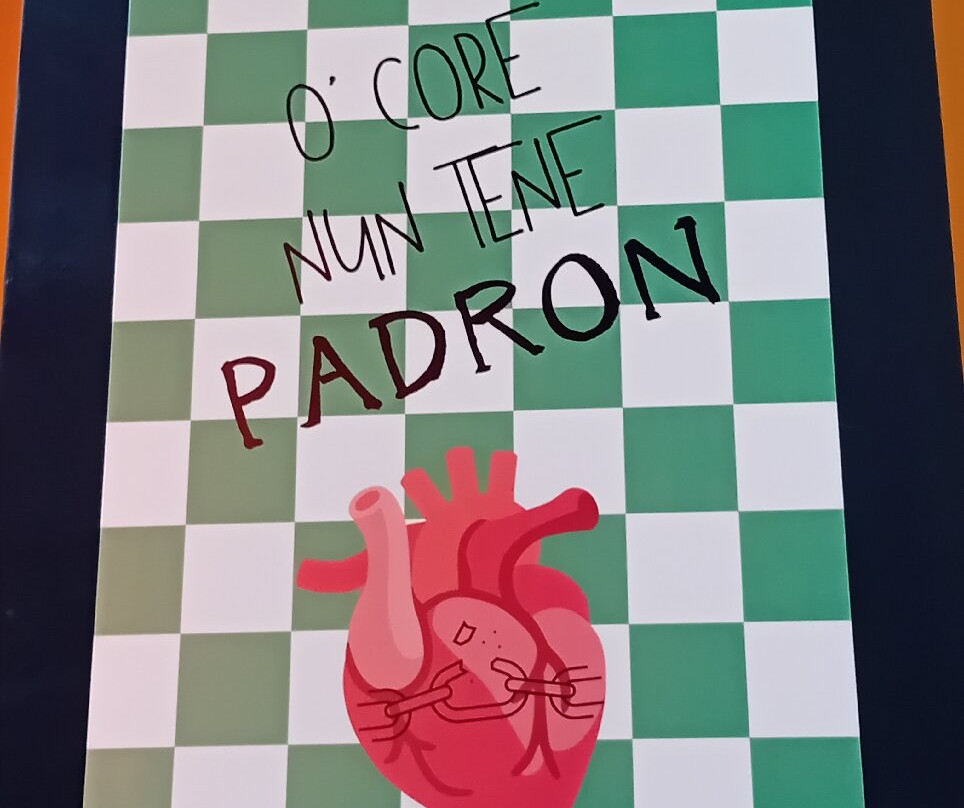 O' CORE
NUN TENE
PADRON